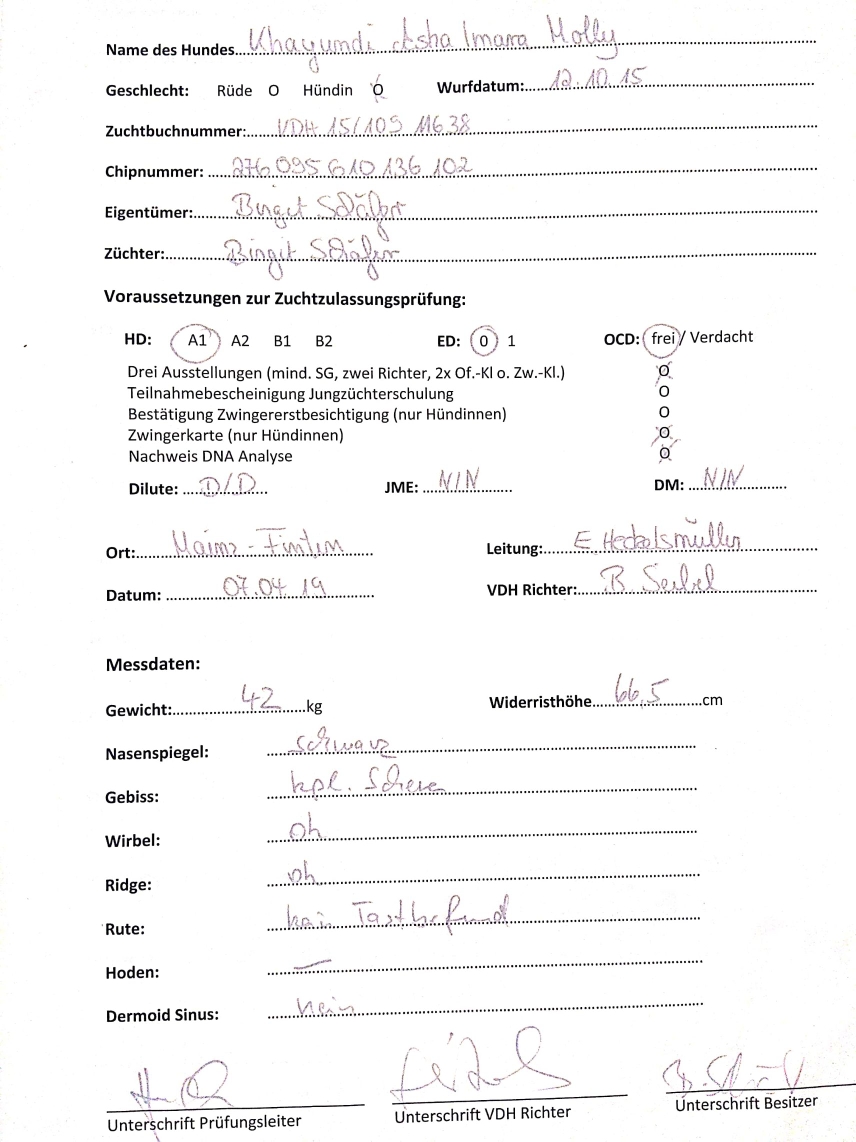 Name des Hundes Khayumdi Asha Imara Molly
Geschlecht: Rüde O Hündin O Wurfdatum: 12.10.15
Zuchtbuchnummer: VDH 15/109 11638
Chipnummer: 276 095 610 136 102
Eigentümer: Birgit Schäfer
Züchter: Birgit Schäfer
Voraussetzungen zur Zuchtzulassungsprüfung:
HD: A1 A2 B1 B2 ED: 0 1 OCD: frei / Verdacht
Drei Ausstellungen (mind. SG, zwei Richter, 2x Of.-Kl o. Zw.-Kl.) O
Teilnahmebescheinigung Jungzüchterschulung O
Bestätigung Zwingererstbesichtigung (nur Hündinnen) O
Zwingerkarte (nur Hündinnen) O
Nachweis DNA Analyse O
Dilute: D/D JME: N/N DM: N/N
Ort: Mainz-Finthen Leitung: E Heckelsmüller
Datum: 07.04.19 VDH Richter: B. Seibel
Messdaten:
Gewicht: 42 kg Widerristhöhe 66,5 cm
Nasenspiegel: schwarz
Gebiss: kpl. Schere
Wirbel: oh
Ridge: oh
Rute: kein Tastbefund
Hoden: —
Dermoid Sinus: nein
Unterschrift Prüfungsleiter Unterschrift VDH Richter Unterschrift Besitzer